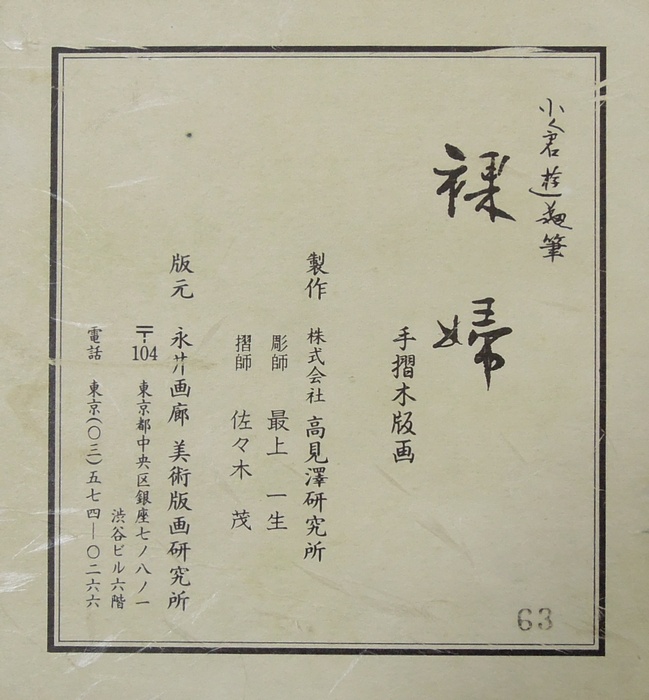 小倉遊亀筆
裸婦
手摺木版画
製作 株式会社 高見澤研究所
彫師 最上 一生
摺師 佐々木 茂
版元 永井画廊 美術版画研究所
〒104 東京都中央区銀座七ノ八ノ一
渋谷ビル六階
電話 東京(〇三)五七四―〇二六六
63